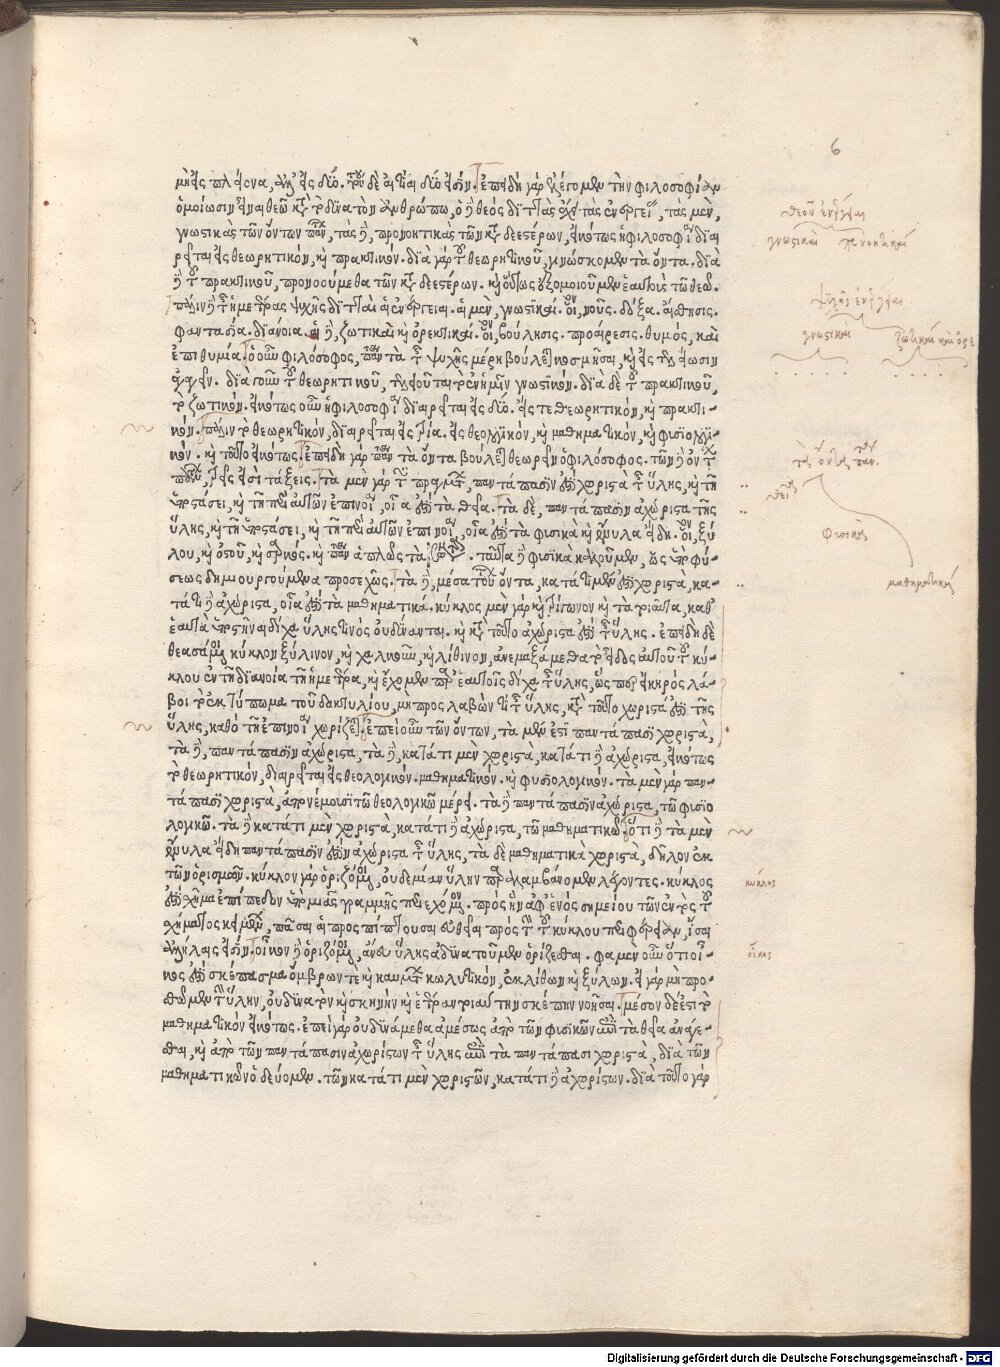 6
μὴ εἰς πλείονα, ἀλλ' εἰς δύο. τοῦ δὲ αἰτίαι δύο εἰσίν. ἐπειδὴ γὰρ ἐλέγομεν τὴν φιλοσοφίαν
ὁμοίωσιν εἶναι θεῶ κατὰ τὸ δυνατὸν ἀνθρώπω, ὁ δὲ θεὸς διττὰς ἔχει τὰς ἐνεργείας, τὰς μὲν,
γνωστικὰς τῶν ὄντων πάντων, τὰς δὲ, προνοητικὰς τῶν καταδεεστέρων, εἰκότως ἡ φιλοσοφία διαι
ρεῖται εἰς θεωρητικὸν, καὶ πρακτικόν. διὰ γὰρ τοῦ θεωρητικοῦ, γινώσκομεν τὰ ὄντα. διὰ
δὲ τοῦ πρακτικοῦ, προνοούμεθα τῶν καταδεεστέρων. καὶ οὕτως ἐξομοιοῦμεν ἑαυτοὺς τῶ θεῶ.
πάλιν δὲ τῆς ἡμετέρας ψυχῆς διτταὶ αἱ ἐνέργειαι. αἱ μὲν, γνωστικαί. οἷον, νοῦς. δόξα. αἴσθησις.
φαντασία. διάνοια. αἱ δὲ, ζωτικαὶ καὶ ὀρεκτικαί. οἷον, βούλησις. προαίρεσις. θυμός, καὶ
ἐπιθυμία. ὁ οὖν φιλόσοφος, πάντα τὰ τῆς ψυχῆς μέρη βούλεται κοσμῆσαι, καὶ εἰς τελείωσιν
ἀγαγεῖν. διὰ τοίνυν τοῦ θεωρητικοῦ, τελειοῦται τὸ ἐν ἡμῖν γνωστικόν. διὰ δὲ τοῦ πρακτικοῦ,
τὸ ζωτικόν. εἰκότως οὖν ἡ φιλοσοφία διαιρεῖται εἰς δύο. εἴς τε θεωρητικὸν, καὶ πρακτι-
κόν. πάλιν τὸ θεωρητικὸν, διαιρεῖται εἰς τρία. εἰς θεολογικὸν, καὶ μαθηματικὸν, καὶ φυσιολογι-
κόν. καὶ τοῦτο εἰκότως. ἐπειδὴ γὰρ πάντα τὰ ὄντα βούλεται θεωρεῖν ὁ φιλόσοφος. τῶν δὲ ὄντων
πάντων, τρεῖς εἰσὶ τάξεις. τὰ μὲν γὰρ τῶν πραγμάτων, παντάπασίν ἐστι χωριστὰ τῆς ὕλης, καὶ τῆ
ὑποστάσει, καὶ τῆ περὶ αὐτῶν ἐπινοία, οἷά ἐστι τὰ θεῖα. τὰ δὲ, παντάπασιν ἀχώριστα τῆς
ὕλης, καὶ τῆ ὑποστάσει, καὶ τῆ περὶ αὐτῶν ἐπινοία, οἷά ἐστι τὰ φυσικὰ καὶ ἔνυλα εἴδη. οἷον, ξύ
λου, καὶ ὀστοῦ, καὶ σαρκός. καὶ πάντα ἁπλῶς τὰ σώματα. ταῦτα δὲ φυσικὰ καλοῦμεν, ὡς ὑπὸ φύ-
σεως δημιουργούμενα προσεχῶς. τὰ δὲ, μέσα τούτων ὄντα, κατά τι μέν ἐστι χωριστὰ, κα-
τά τι δὲ ἀχώριστα, οἷά ἐστι τὰ μαθηματικά. κύκλος μὲν γὰρ καὶ τρίγωνον καὶ τὰ τοιαῦτα, καθ'
ἑαυτὰ ὑποστῆναι δίχα ὕλης τινὸς οὐ δύνανται. καὶ κατὰ τοῦτο ἀχώριστά ἐστι τῆς ὕλης. ἐπειδὴ δὲ
θεασάμενοι κύκλον ξύλινον, καὶ χαλκοῦν, καὶ λίθινον, ἀνεμαξάμεθα τὸ εἶδος αὐτοῦ τοῦ κύ-
κλου ἐν τῆ διανοία τῆ ἡμετέρα, καὶ ἔχομεν παρ' ἑαυτοῖς δίχα τῆς ὕλης, ὥσπερ εἰ κηρὸς λά-
βοι τὸ ἐκτύπωμα τοῦ δακτυλίου, μὴ προσλαβών τι τῆς ὕλης, κατὰ τοῦτο χωριστά ἐστι τῆς
ὕλης, καθὸ τῆ ἐπινοία χωρίζεται. ἐπεὶ οὖν τῶν ὄντων, τὰ μέν ἐστι παντάπασι χωριστὰ,
τὰ δὲ, παντάπασιν ἀχώριστα, τὰ δὲ, κατά τι μὲν χωριστὰ, κατά τι δὲ ἀχώριστα, εἰκότως
τὸ θεωρητικὸν, διαιρεῖται εἰς θεολογικόν. μαθηματικόν. καὶ φυσιολογικόν. τὰ μὲν γὰρ παν-
τάπασι χωριστὰ, ἀπονέμουσι τῶ θεολογικῶ μέρει. τὰ δὲ παντάπασιν ἀχώριστα, τῶ φυσιο
λογικῶ. τὰ δὲ κατά τι μὲν χωριστὰ, κατά τι δὲ ἀχώριστα, τῶ μαθηματικῶ. ὅτι δὲ τὰ μὲν
ἔνυλα εἴδη παντάπασίν ἐστιν ἀχώριστα τῆς ὕλης, τὰ δὲ μαθηματικὰ χωριστὰ, δῆλον ἐκ
τῶν ὁρισμῶν. κύκλον γὰρ ὁριζόμενοι, οὐδεμίαν ὕλην παραλαμβάνομεν λέγοντες. κύκλος
ἐστὶ σχῆμα ἐπίπεδον ὑπὸ μιᾶς γραμμῆς περιεχόμενον. πρὸς ἣν ἀφ' ἑνὸς σημείου τῶν ἐντὸς τοῦ
σχήματος κειμένων, πᾶσαι αἱ προσπίπτουσαι εὐθεῖαι πρὸς τὴν τοῦ κύκλου περιφέρειαν, ἴσαι
ἀλλήλαις εἰσίν. οἶκον δὲ ὁριζόμενοι, ἄνευ ὕλης ἀδυνατοῦμεν ὁρίζεσθαι. φαμὲν οὖν ὅτι οἶ-
κός ἐστι σκέπασμα ὄμβρων τε καὶ καυμάτων κωλυτικὸν, ἐκ λίθων καὶ ξύλων. εἰ γὰρ μὴ προσ-
θῶμεν τὴν ὕλην, οὐδὲν ἂν καὶ σκηνὴν καὶ ἑτέραν τοιαύτην σκέπην νοῆσαι. μέσον δέ ἐστι τὸ
μαθηματικὸν εἰκότως. ἐπεὶ γὰρ οὐ δυνάμεθα ἀμέσως ἀπὸ τῶν φυσικῶν ἐπὶ τὰ θεῖα ἀνάγε-
σθαι, καὶ ἀπὸ τῶν παντάπασιν ἀχωρίστων τῆς ὕλης ἐπὶ τὰ παντάπασι χωριστὰ, διὰ τῶν
μαθηματικῶν ὁδεύομεν. τῶν κατά τι μὲν χωριστῶν, κατά τι δὲ ἀχωρίστων. διὰ τοῦτο γὰρ
θεοῦ ἐνέργειαι
γνωστικαὶ προνοητικαί
ψυχῆς ἐνέργειαι
γνωστικαὶ ζωτικαὶ καὶ ὀρε
τῶν ὄντων πάντων
θεῖα
φυσικὰ
μαθηματικά
κύκλος
οἶκος
Digitalisierung gefördert durch die Deutsche Forschungsgemeinschaft - DFG